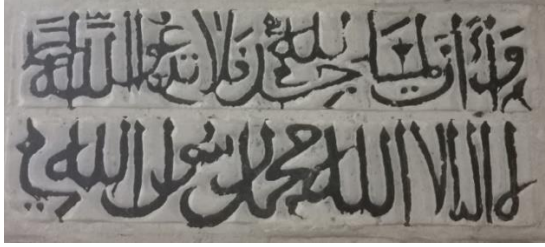 وأن المساجد لله فلا تدعوا مع الله أحدا
لا اله الا الله محمد رسول الله